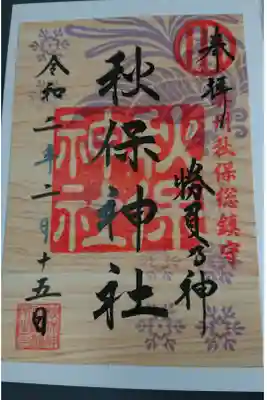 奉拝
州秋保総鎮守
勝負乃神
秋保神社
秋保
神社
令和二年二月十五日